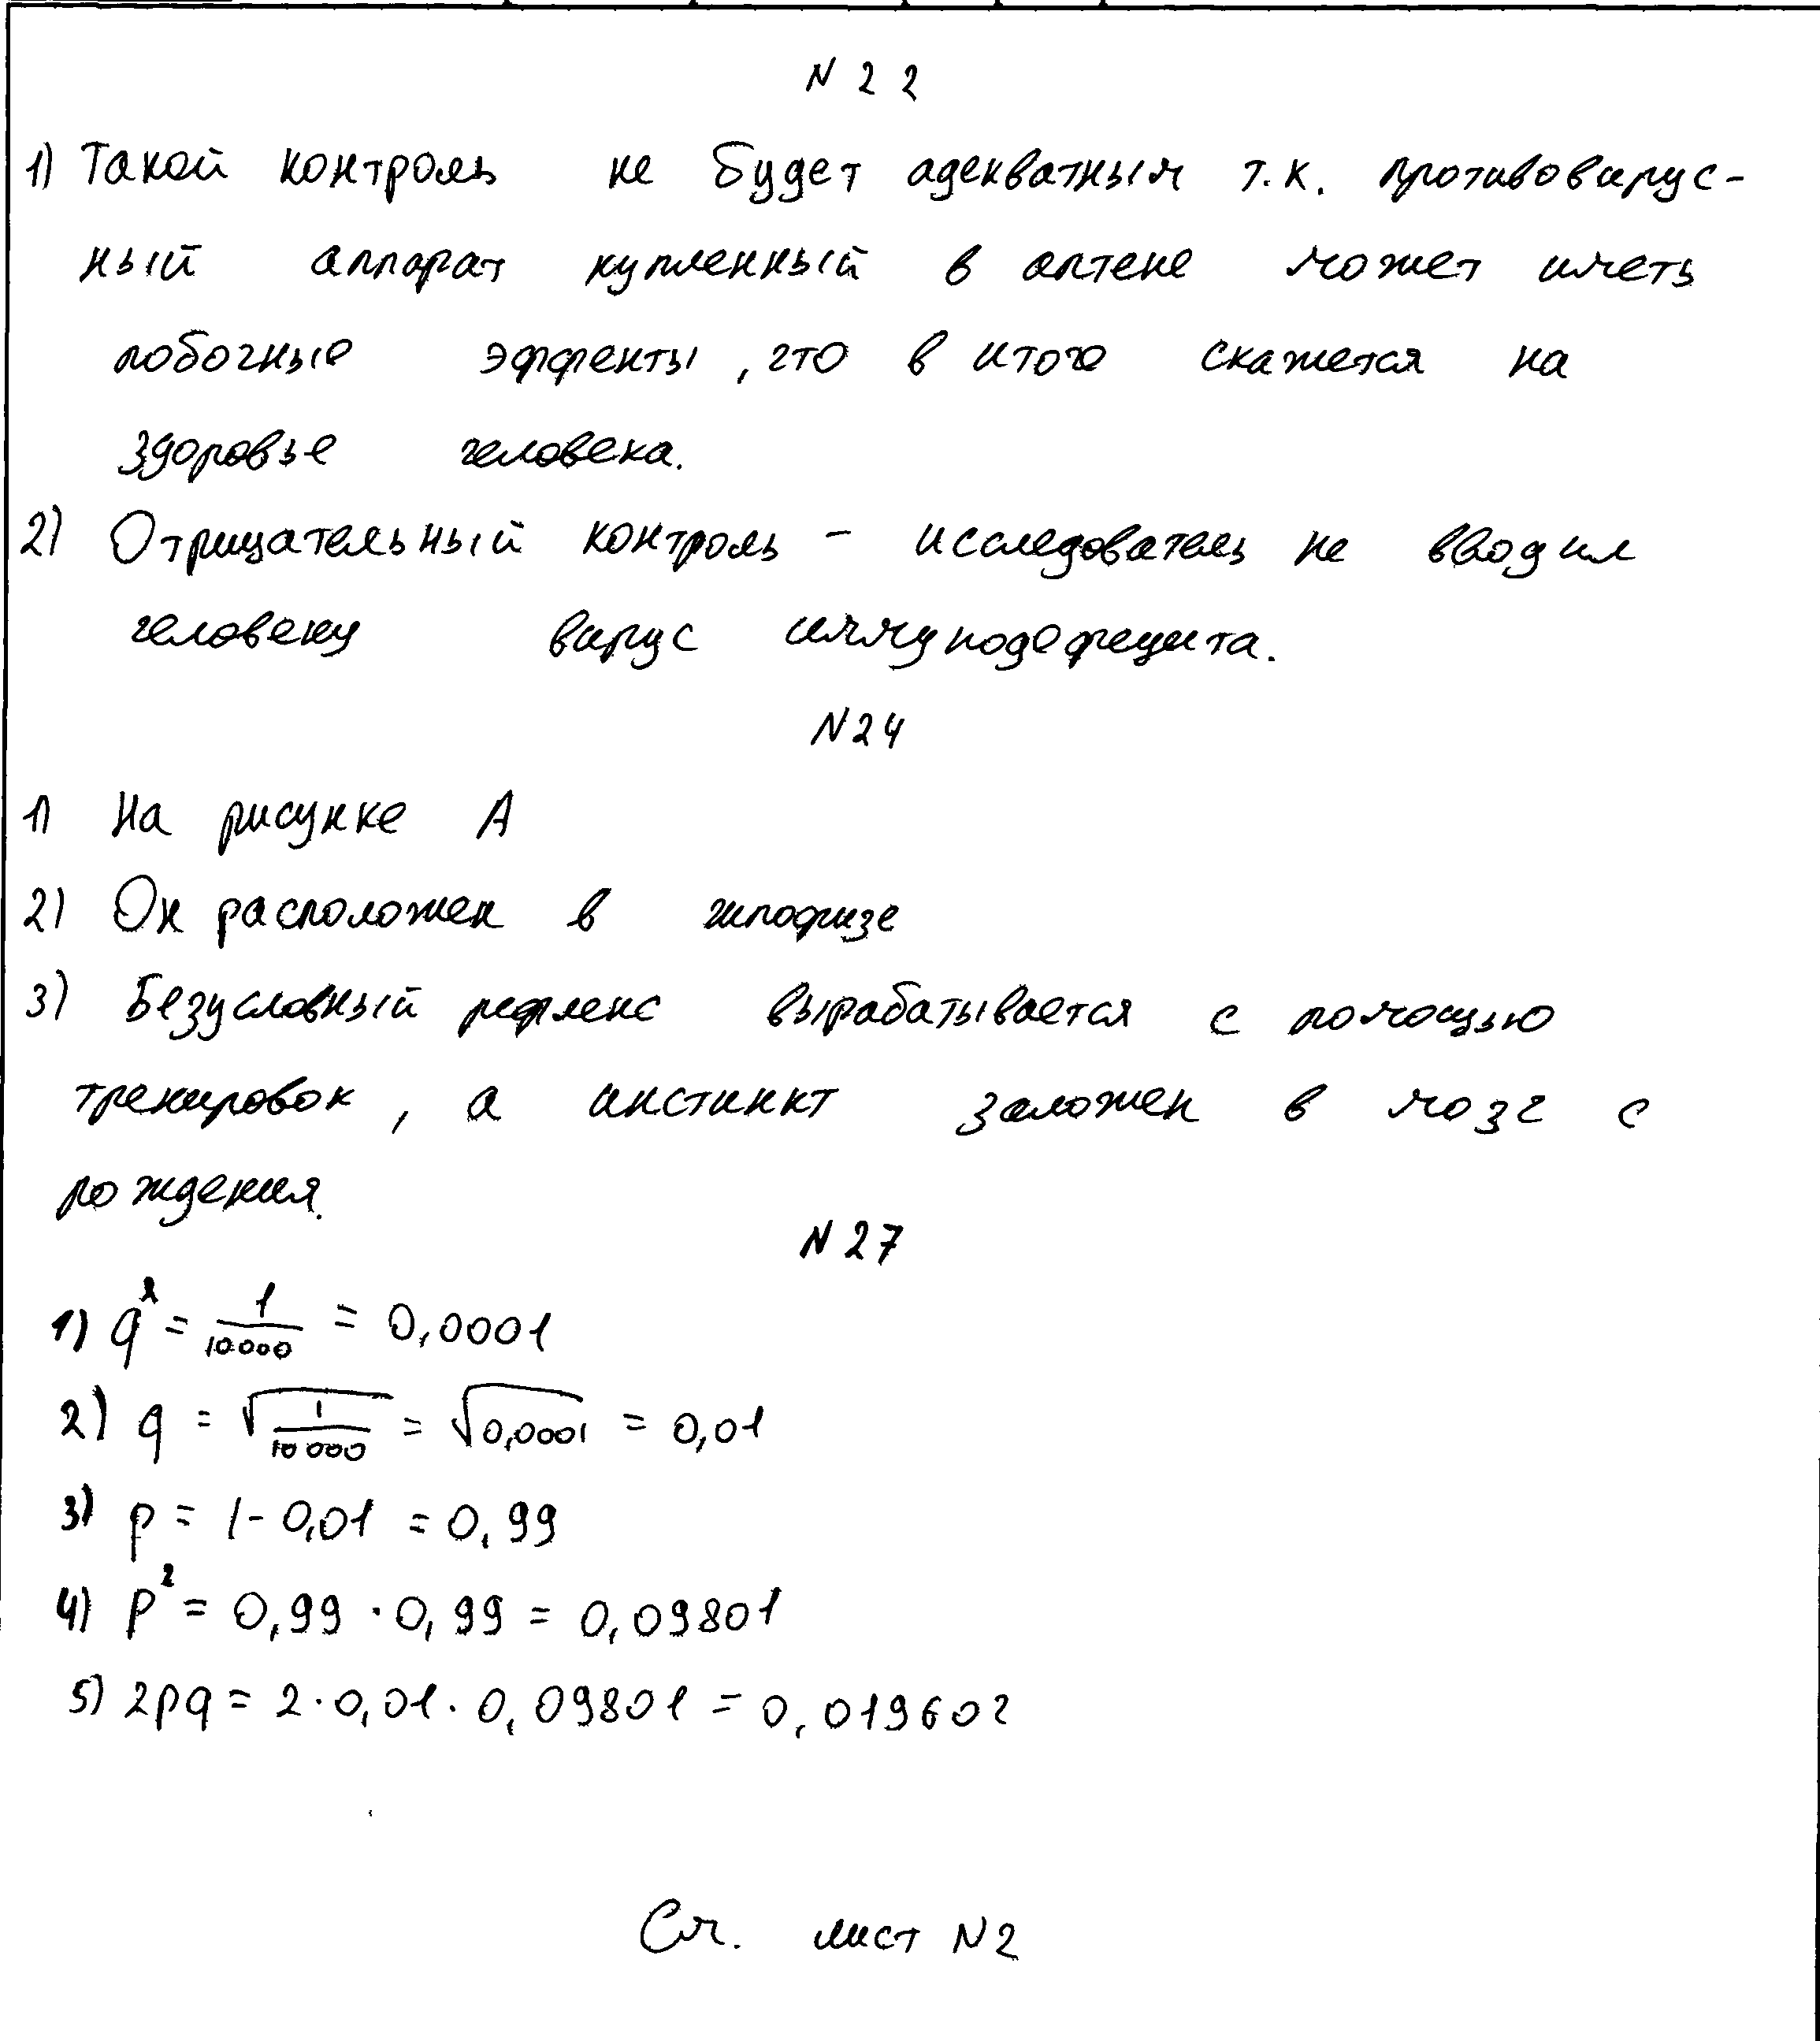 N 22
1) Такой контроль не будет адекватным т.к. противовирус-
ный аппарат купленный в аптеке может иметь
побочные эффекты, что в итоге скажется на
здоровье человека.
2) Отрицательный контроль - исследователь не вводил
человеку вирус иммунодефецита.
N24
1) На рисунке А
2) Он расположен в гипофизе
3) Безусловный рефлекс вырабатывается с помощью
тренировок, а инстинкт заложен в мозг с
рождения.
N 27
1) q² = 1/10.000 = 0,0001
2) q = √(1/10 000) = √0,0001 = 0,01
3) p = 1 - 0,01 = 0,99
4) p² = 0,99 · 0,99 = 0,09801
5) 2pq = 2 · 0,01 · 0,09801 = 0,019602
См. лист N2